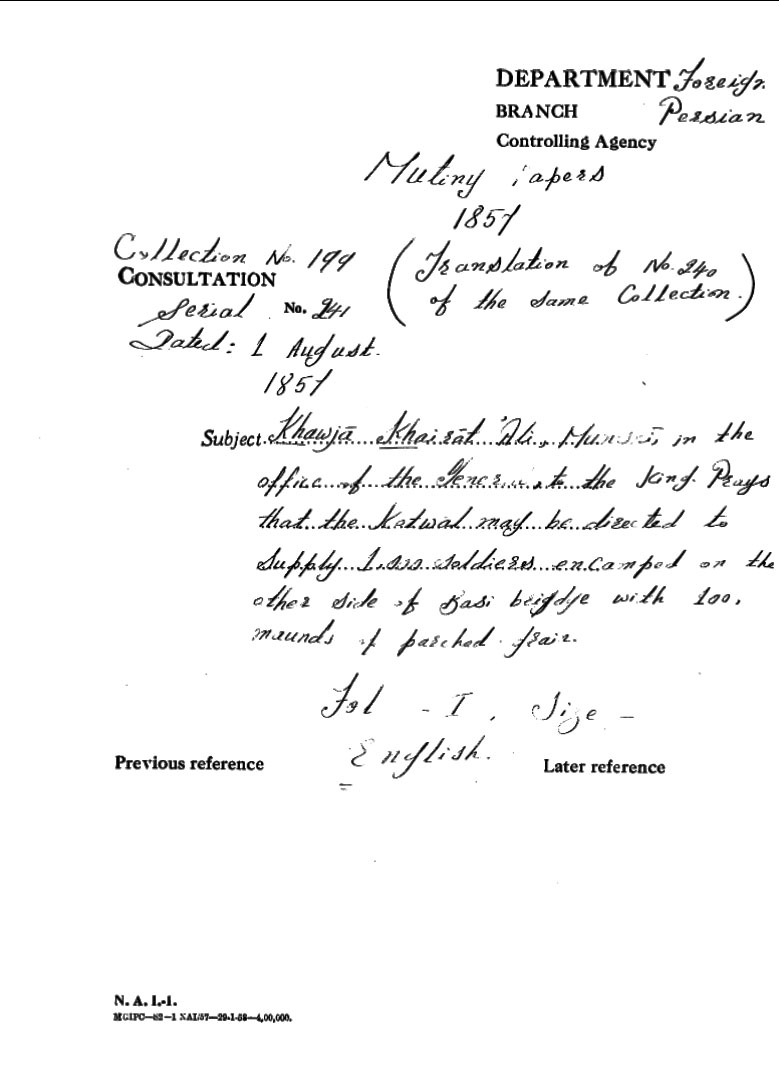 DEPARTMENT Foreign
BRANCH Persian
Controlling Agency
Mutiny Papers
1857
Collection No. 199
CONSULTATION
(Translation of No. 240
of the same Collection.)
Serial No. 241
Dated: 1 August.
1857
Subject. Khawjā Khairāt 'Ali, Munshī, in the
office of the General to the King. Prays
that the Kotwal may be directed to
supply 1,000 soldiers encamped on the
other side of Basi beigdye with 100,
maunds of parched grain.
Fol - I, Size -
English.
Previous reference
Later reference
N. A. I.-1.
MGIPC—S2—1 NAI/57—29-1-58—4,00,000.